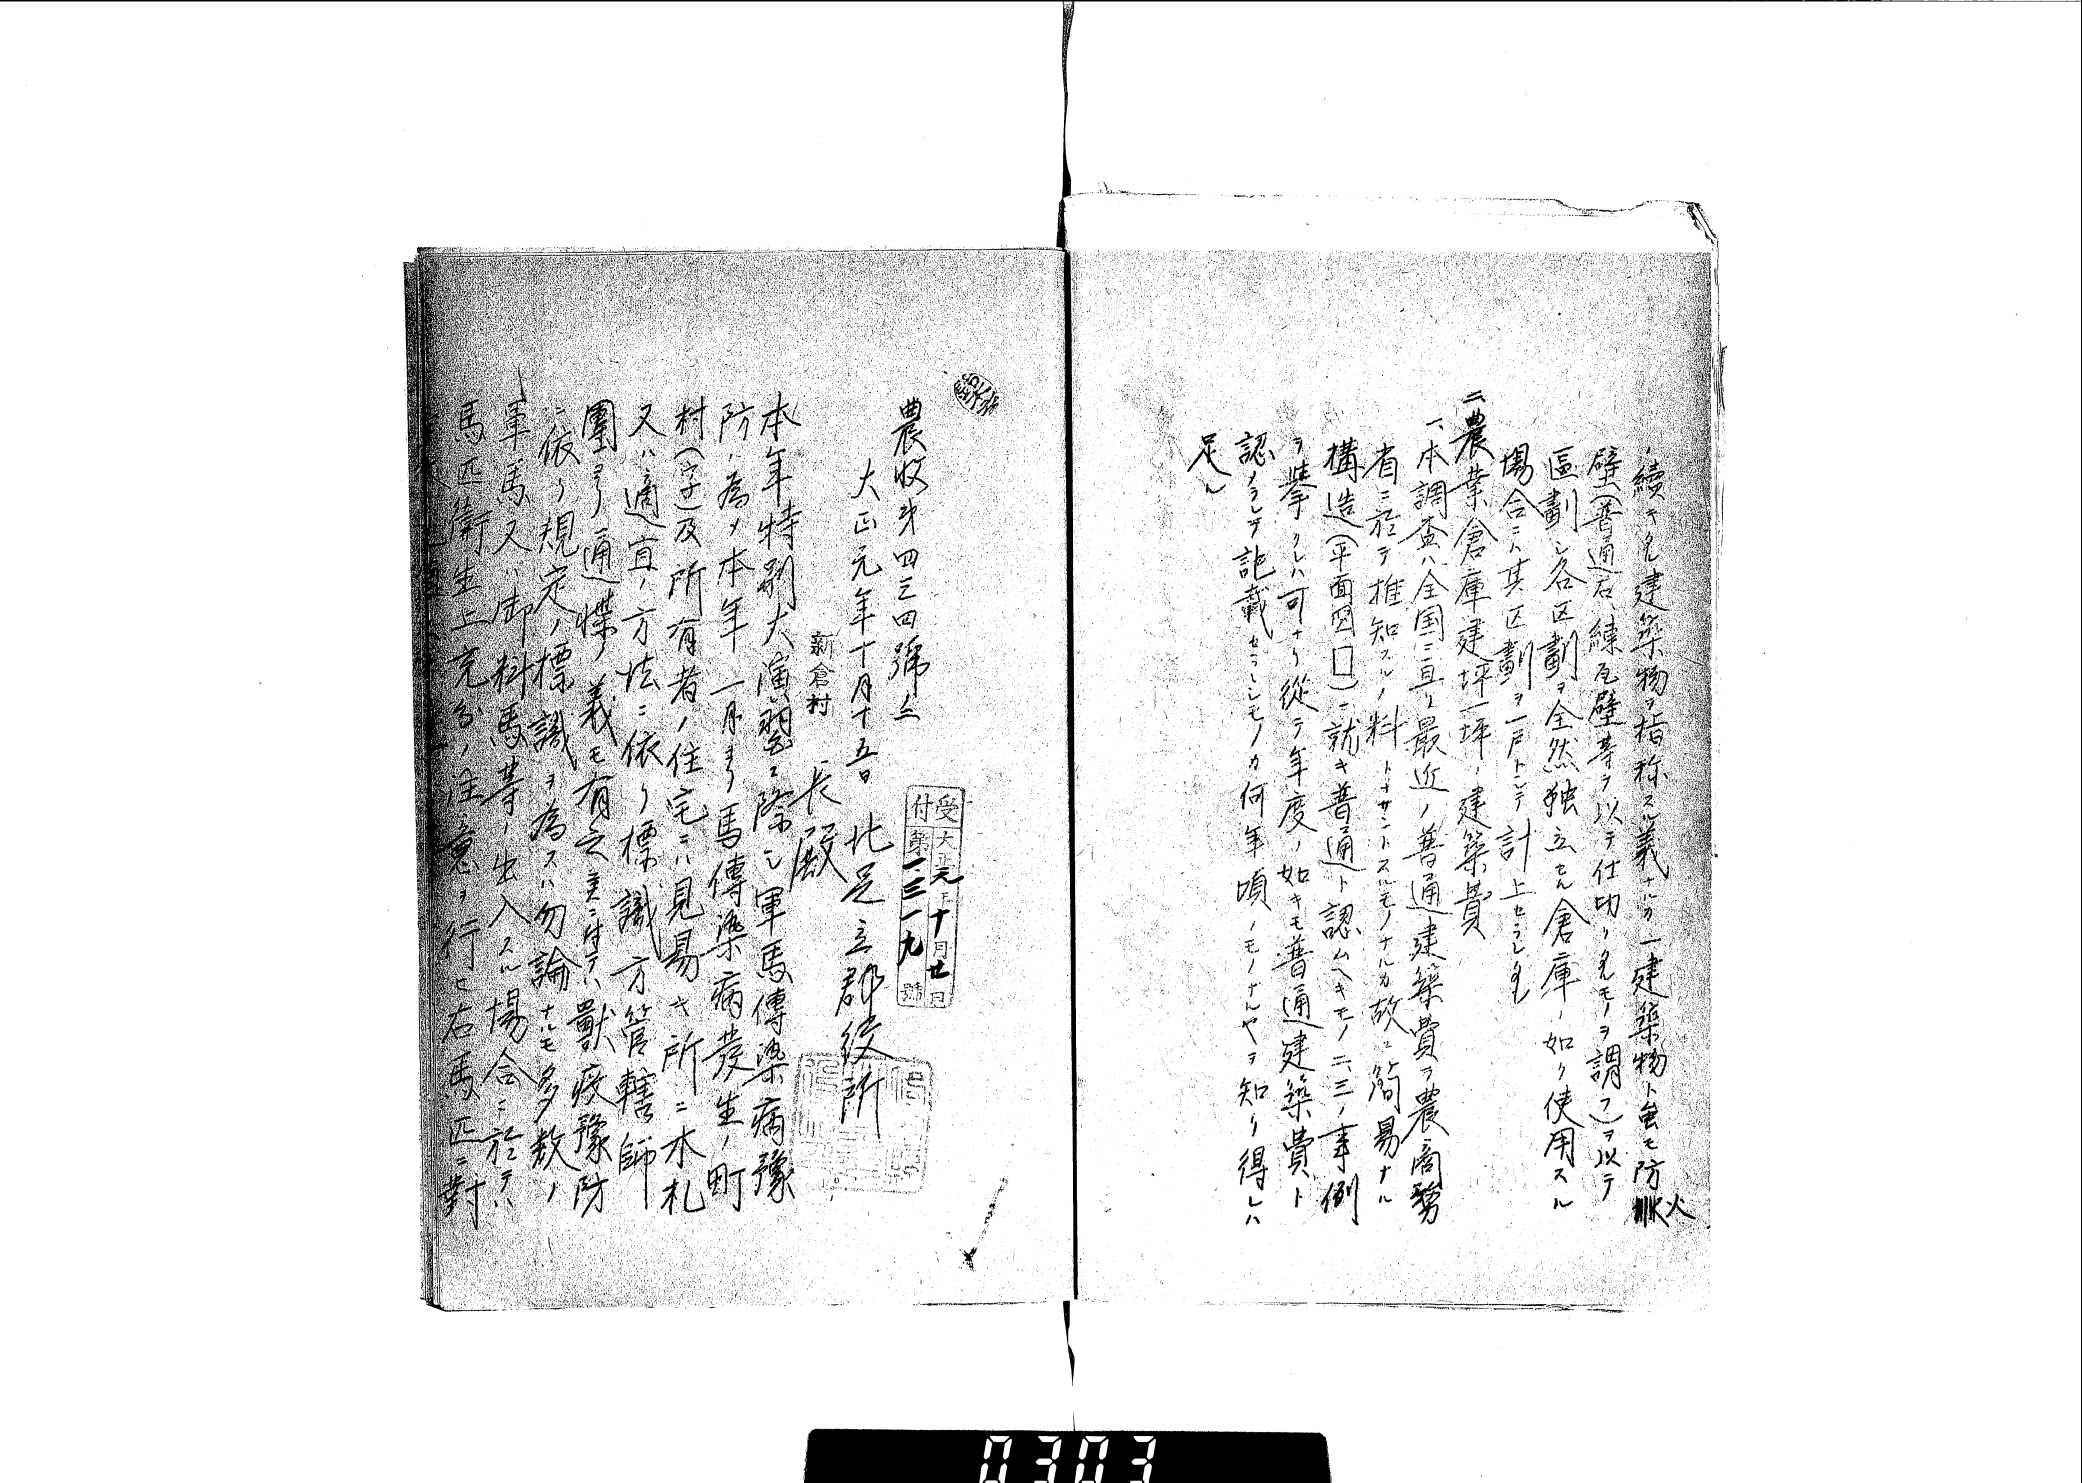 ノ続キタル建築物ヲ指称スル義ナルカ一建築物ト虽モ防火
壁(普通石、練瓦壁等ヲ以テ仕切リタルモノヲ謂フ)ヲ以テ
區劃シ各区劃ヲ全然独立セル倉庫ノ如ク使用スル
場合ニハ其区劃ヲ一戸トシテ計上セラレタシ
二、農業倉庫建坪一坪ノ建築費
一、本調査ハ全国ニ亘リ最近ノ普通建築費ヲ農商務
省ニ於テ推知スルノ料トナサントスルモノナルカ故ニ簡易ナル
構造(平面図□)ニ就キ普通ト認ムヘキモノ二、三ノ事例
ヲ挙クレハ可ナリ従テ年度ノ如キモ普通建築費ト
認メラレテ記載セラレシモノカ何年頃ノモノナルヤヲ知リ得レハ
足ル
農收第四三四號ノ三
大正元年十月十五日
北足立郡役所
新倉村長殿
受付
大正元年十月廿日
第一、三一九號
本年特別大演習ニ際シ軍馬傳染病豫
防ノ為メ本年一月ヨリ馬傳染病発生ノ町
村(字)及所有者ノ住宅ニハ見易キ所ニ木札
又ハ適宜ノ方法ニ依リ標識方管轄師
團ヨリ通牒ノ義モ有之候ニ付テハ獣疫豫防
ニ依リ規定ノ標識ヲ為スハ勿論ナルモ多数ノ
軍馬又ハ御料馬等ノ出入スル場合ニ於テハ
馬匹衛生上充分ノ注意ヲ行ヒ右馬匹ニ對
0303